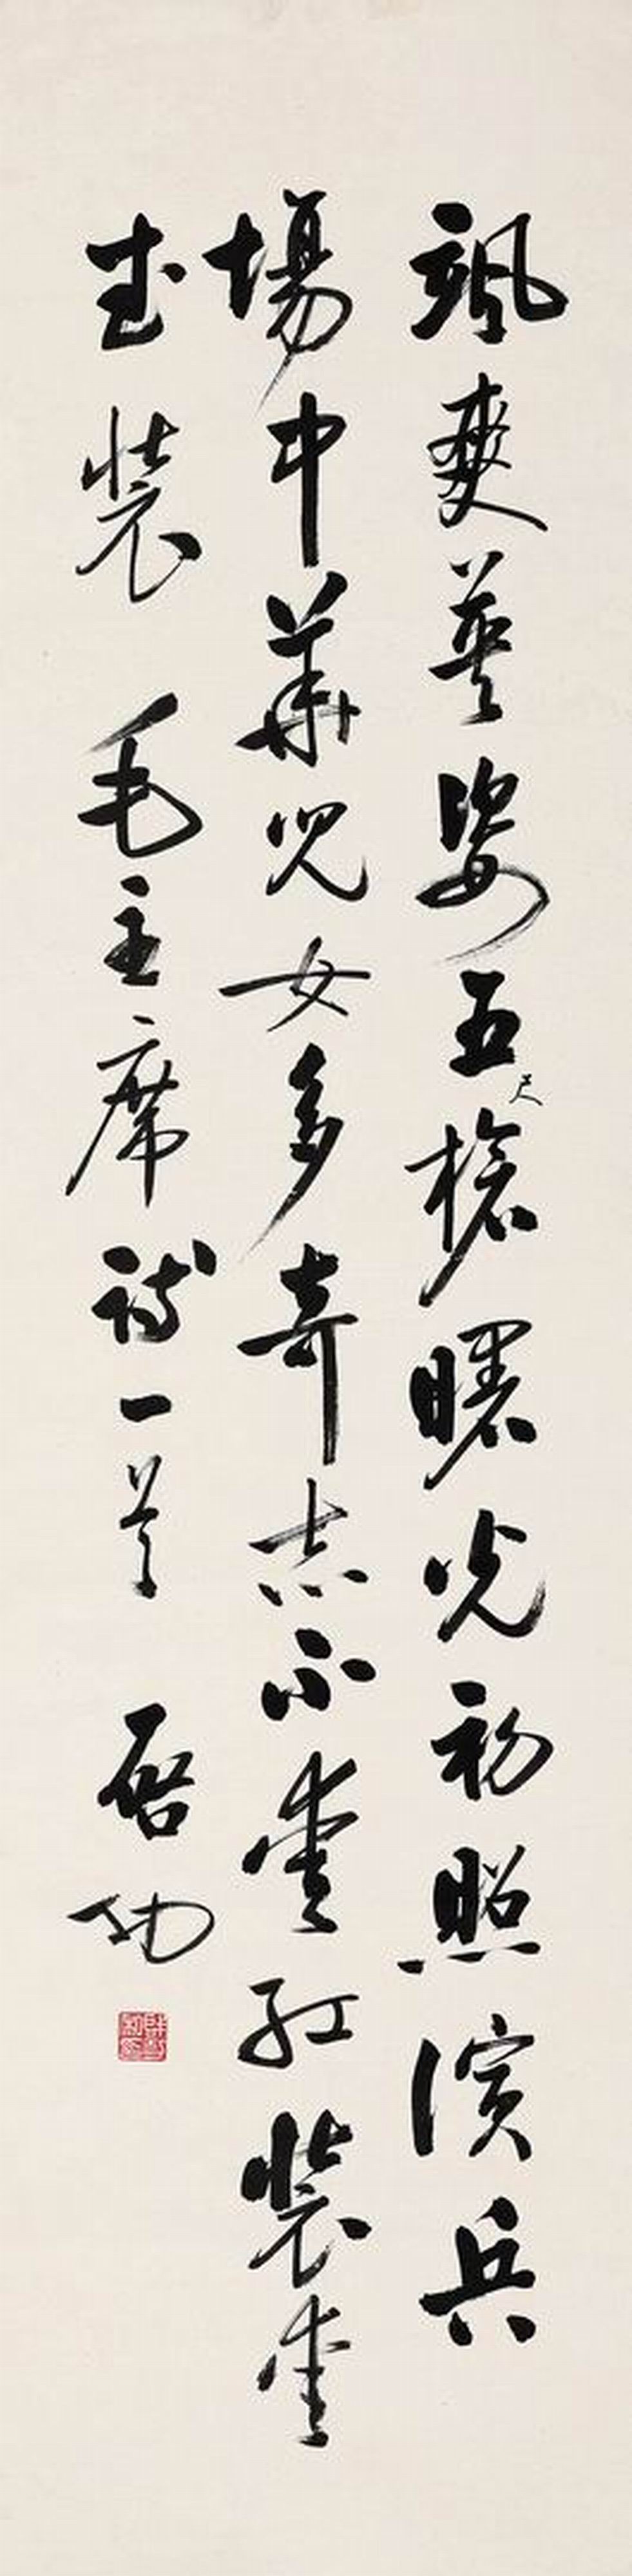 颯爽英姿五尺槍曙光初照演兵
場中華兒女多奇志不愛紅裝愛
武裝 毛主席詩一首 啓功